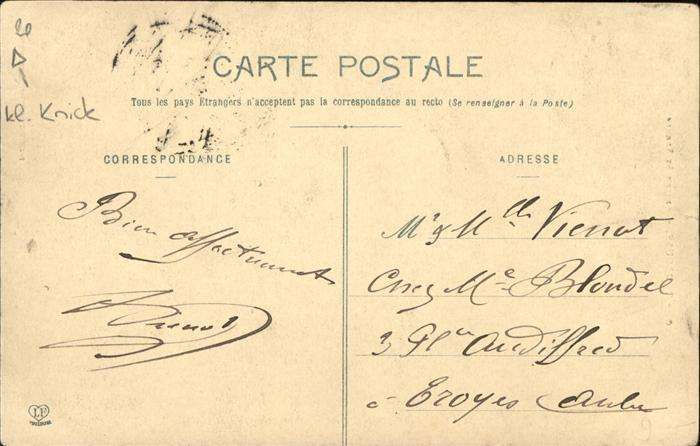 kl. Knick
CARTE POSTALE
Tous les pays Etrangers n'acceptent pas la correspondance au recto (Se renseigner à la Poste)
CORRESPONDANCE
Bien affectment
ADRESSE
Mr & Mlle Viennot
Chez Me Blondel
3 Pl. Audiffred
à Troyes Aube